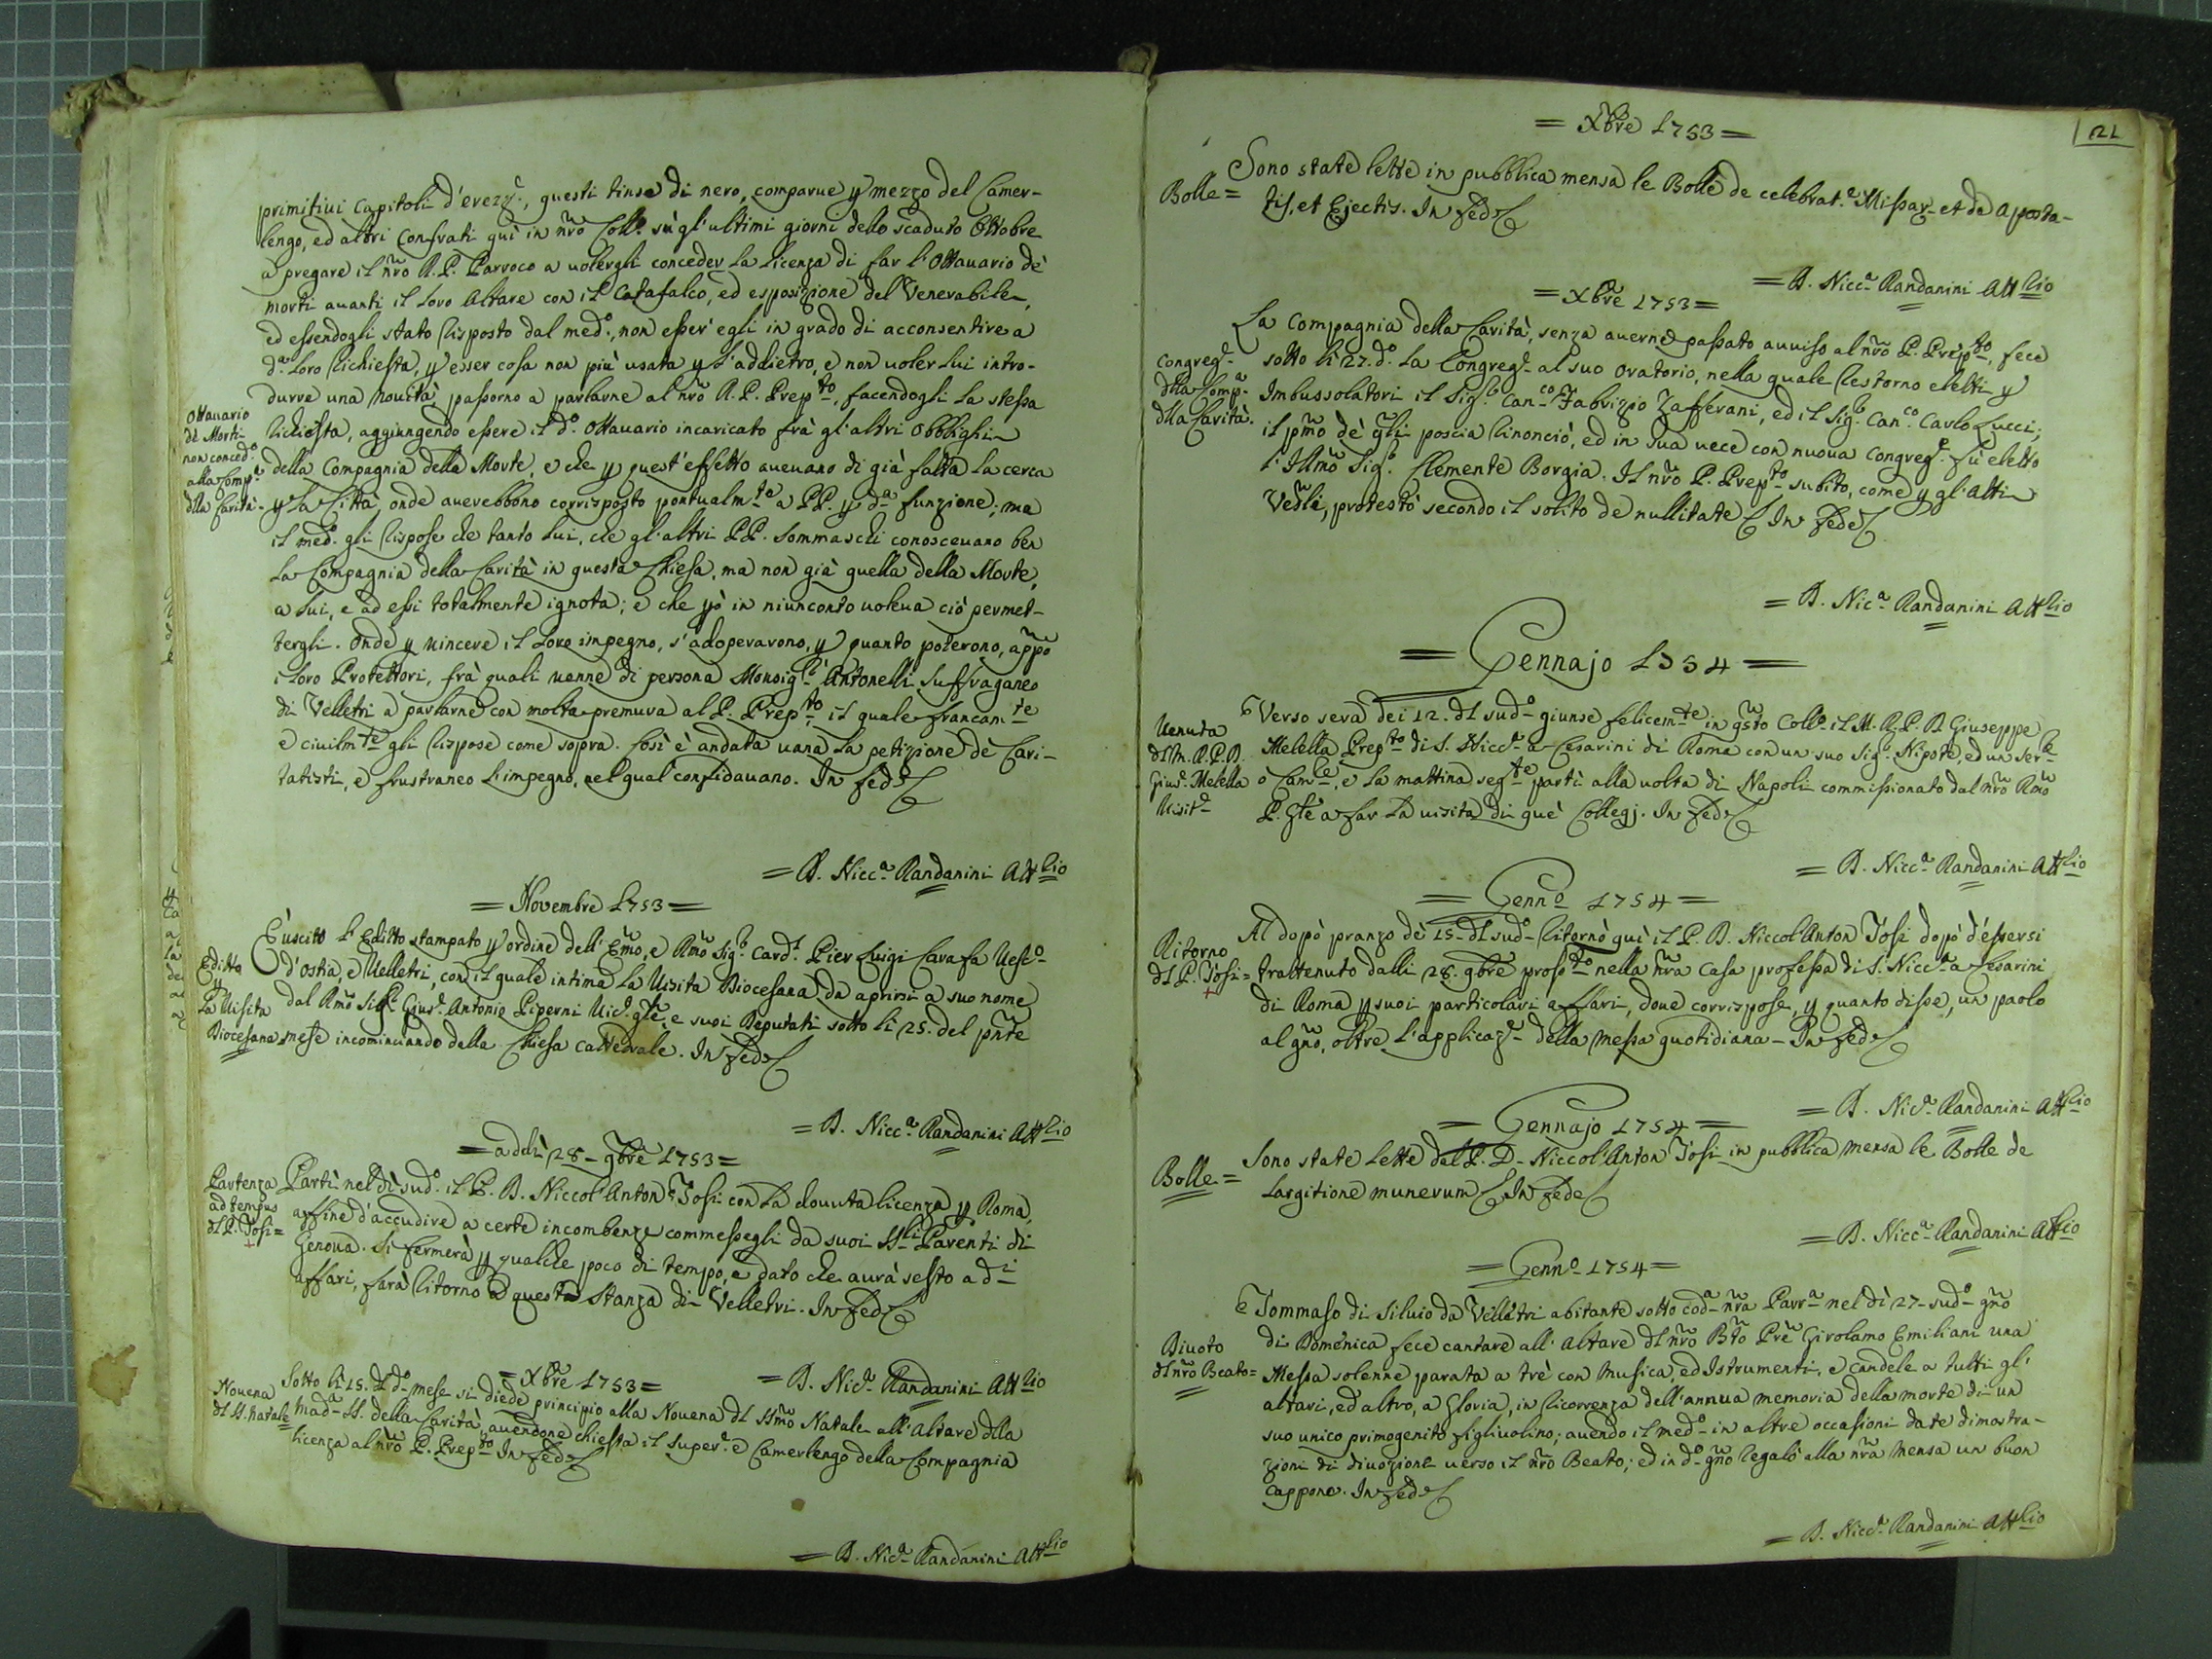 primitivi Capitoli d'erez.e, questi tinse di nero, comparve p mezzo del Camer-
lengo, ed altri Confrati quì in nr̃o Coll.o sù gl'ultimi giorni dello scaduto Ottobre
a pregare il nr̃o R. P. Parroco a volergli conceder la licenza di far l'Ottavario de'
morti avanti il loro Altare con il Catafalco, ed esposizione del Venerabile,
ed essendogli stato risposto dal med.o, non esser' egli in grado di acconsentire a
d.a loro richiesta, p esser cosa non più usata p l'addietro, e non voler lui intro-
durre una novità, passorno a parlarne al nr̃o R. P. Prep.to, facendogli la stessa
richiesta, aggiungendo essere il d.o Ottavario incaricato frà gl'altri Obblighi
della Compagnia della Morte, e che p quest'effetto avevano di già fatta la cerca
p la Città, onde averebbono corrisposto pontualm.te a PP. p d.a funzione; ma
il med.o gli rispose che tanto lui, che gl'altri PP. Sommaschi conoscevano ben
la Compagnia della Carità in questa Chiesa, ma non già quella della Morte,
a lui, e ad essi totalmente ignota; e che pò in niun conto voleva ciò permet-
tergli. Onde p vincere il loro impegno, s'adoperarono, p quanto poterono, app̃o
i loro Protettori, frà quali venne di persona Monsig.r Antonelli Suffraganeo
di Velletri a parlarne con molta premura al P. Prep.to, il quale francam.te
e civilm.te gli rispose come sopra. Così è andata vana la petizione de' Cari-
tatisti, e frustraneo l'impegno, nel qual confidavano. In fede
Ottavario
de' Morti
non conced.o
alla Comp.a
dlla Carità
= D. Nicc.a Randanini Att.lio
= Novembre 1753 =
È uscito l'Editto stampato p ordine dell'Em̃o, e Rm̃o Sig.r Card.l Pier Luigi Carafa Vesc.o
d'Ostia, e Velletri, con il quale intima la Visita Diocesana da aprirsi a suo nome
dal Rm̃o Sig.r Gius.e Antonio Piperni Vic.o gñle, e suoi Deputati sotto li 25. del pñte
mese incominciando dalla Chiesa Cattedrale. In fede
Editto
p
la Visita
Diocesana
= D. Nicc.a Randanini Att.lio
= addì 28 - 9bre 1753 =
Partì nel dì sud.o il P. D. Niccol'Anton Josi con la dovuta licenza p Roma,
affine d'accudire a certe incombenze commessegli da suoi SS.ri Parenti di
Genova. Si fermerà p qualche poco di tempo, e dato che avrà sesto a d.i
affari, farà ritorno a questa Stanza di Velletri. In fede
Partenza
ad tempus
dl P. Josi =
= D. Nic.a Randanini Att.lio
= Xbre 1753 =
Sotto li 15. dl d.o mese si diede principio alla Novena dl SSm̃o Natale all'Altare dlla
Mad.a SS. della Carità, avendone chiesta il Super.e e Camerlengo della Compagnia
licenza al nr̃o P. Prep.to In fede
Novena
dl SS. Natale
= D. Nic.a Randanini Att.lio
121
= Xbre 1753 =
Sono state lette in pubblica mensa le Bolle de celebrat.e Missar. et de Aposta-
tis, et Ejectis. In fede
Bolle =
= D. Nicc.a Randanini Att.lio
= Xbre 1753 =
La Compagnia della Carità, senza averne passato avviso al nr̃o P. Prep.to, fece
sotto li 27. d.o la Congreg.e al suo Oratorio, nella quale restorno eletti p
Imbussolatori il Sig.r Can.co Fabrizio Zafferani, ed il Sig.r Can.co Carlo Lucci;
il pm̃o de' qli poscia rinonciò, ed in sua vece con nuova Congreg.e fù eletto
l'Illm̃o Sig.r Clemente Borgia. Il nr̃o P. Prep.to subito, come p gl'Atti
Vedli, protestò secondo il solito de nullitate. In fede
Congreg.e
dlla Comp.a
dlla Carità.
= D. Nic.a Randanini Att.lio
= Gennajo 1754 =
Verso sera dei 12. dl sud.o giunse felicem.te in qsto Coll.o il M. R. P. D. Giuseppe
Melella Prep.to di S. Nicc.a a Cesarini di Roma con un suo Sig.r Nipote, ed un Ser.e
o Cam.e, e la mattina seg.te partì alla volta di Napoli commissionato dal nr̃o Rm̃o
P. Gñle a far la visita di que' Collegj. In fede
Venuta
dl M. R. P. D.
Gius.e Melella
Visit.e
= D. Nicc.a Randanini Att.lio
= Genn.o 1754 =
Al dopò pranzo de' 15 dl sud.o ritornò quì il P. D. Niccol'Anton Josi dopò d'essersi
trattenuto dalli 28. 9bre pross.to nella nr̃a Casa professa di S. Nicc.a a Cesarini
di Roma p suoi particolari affari, dove corrispose, p quanto disse, un paolo
al gño, oltre l'applicaz.e della messa quotidiana - In fede
Ritorno
dl P. Josi =
= D. Nic.a Randanini Att.lio
= Gennajo 1754 =
Sono state lette dal P. D. Niccol'Anton Josi in pubblica mensa le Bolle de
Largitione munerum. In fede
Bolle =
= D. Nicc.a Randanini Att.lio
= Genn.o 1754 =
Tommaso di Silvio da Velletri abitante sotto cod.a nr̃a Parr.a nel dì 27 sud.o gño
di Domenica fece cantare all'Altare dl nr̃o Bt̃o Pr̃e Girolamo Emiliani una
Messa solenne parata a trè con Musica, ed Istrumenti, e candele a tutti gl'
altari, ed altro, a Gloria, in ricorrenza dell'annua memoria della morte di un
suo unico primogenito figliuolino; avendo il med.o in altre occasioni date dimostra-
zioni di divozione verso il nr̃o Beato; ed in d.o gño regalò alla nr̃a Mensa un buon
Cappone. In fede
Divoto
dl nr̃o Beato =
= D. Nicc.a Randanini Att.lio